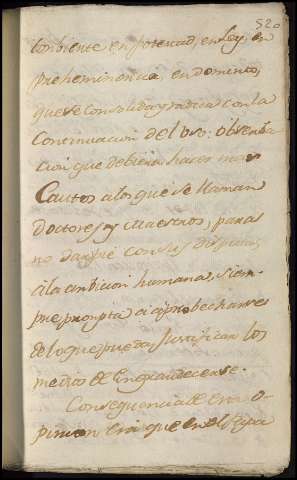 520
conbiente en potestad, en Ley en
preheminencia, en dominio,
que se consolida y radica con la
Continuacion del Uso: observa
cion que debiera hacer mas
Cautos a los que se llaman
doctores y Maestros, para
no dar pie con sus disputas
a la ambicion humana, siem
pre prompta a aprobecharse
de lo que pueda Justificar los
medios de Engrandecerse.
Consequencia de era o-
pinion era que en el Papa